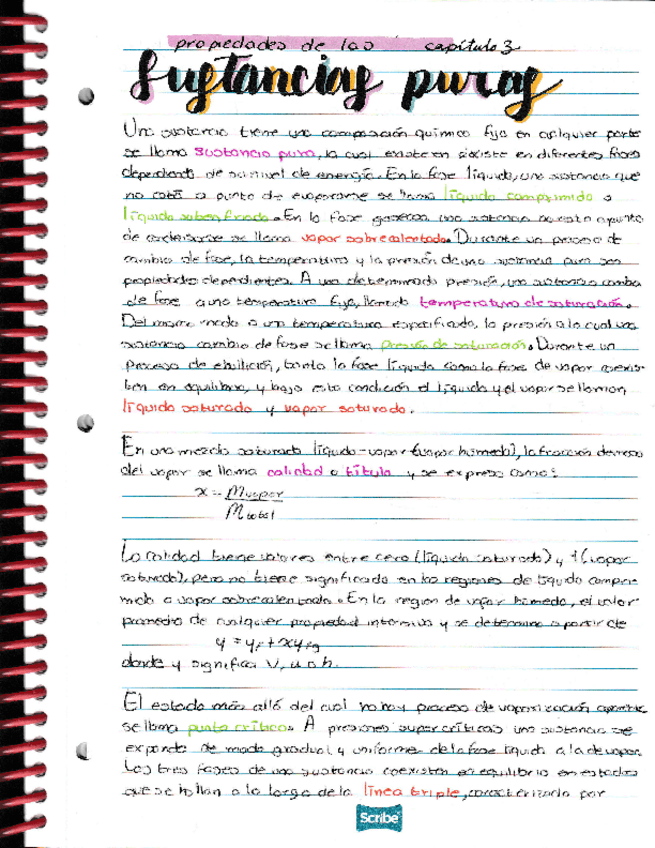 propiedades de las capítulo 3
Sustancias puras
Una sustancia tiene una composición química fija en cualquier parte
se llama sustancia pura, la cual existe en diferentes fases
dependiendo de su nivel de energía. En la fase líquida, una sustancia que
no está a punto de evaporarse se llama líquido comprimido o
líquido subenfriado. En la fase gaseosa una sustancia no esta a punto
de condensarse se llama vapor sobrecalentado. Durante un proceso de
cambio de fase, la temperatura y la presión de una sustancia pura son
propiedades dependientes. A una determinada presión, una sustancia cambia
de fase a una temperatura fija, llamada temperatura de saturación.
Del mismo modo a una temperatura especificada, la presión a la cual una
sustancia cambia de fase se llama presión de saturación. Durante un
proceso de ebullición, tanto la fase líquida como la fase de vapor coexis-
ten en equilibrio, y bajo esta condición el líquido y el vapor se llaman
líquido saturado y vapor saturado.
En una mezcla saturada líquido-vapor (vapor húmedo), la fracción de masa
del vapor se llama calidad o título y se expresa como:
x = Mvapor
Mtotal
La calidad tiene valores entre cero (líquido saturado) y 1 (vapor
saturado), pero no tiene significado en las regiones de líquido compri-
mido o vapor sobrecalentado. En la región de vapor húmedo, el valor
promedio de cualquier propiedad intensiva y se determina a partir de
y = yf + xyfg
donde y significa v, u o h.
El estado más allá del cual no hay proceso de vaporización aparente
se llama punto crítico. A presiones supercríticas una sustancia se
expande de modo gradual y uniforme de la fase líquida a la de vapor.
Las tres fases de una sustancia coexisten en equilibrio en estados
que se hallan a lo largo de la línea triple, caracterizada por
Scribe